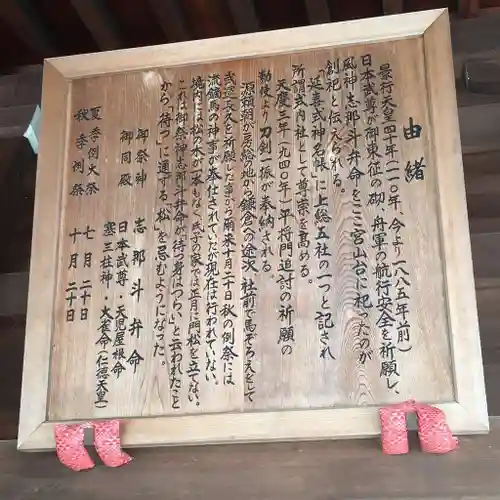 由緒
景行天皇四十年(一一〇年、今より一八八五年前)
日本武尊が御東征の砌、舟軍の航行安全を祈願し、
風神 志那斗弁命をここ宮山台に祀ったのが
創祀と伝えられる。
「延喜式神名帳」に上総五社の一つと記され
所謂式内社として尊崇を高める。
天慶三年(九四〇年)平将門追討の祈願の
勅使より 刀剣一振が奉納される。
源頼朝が房総の地から鎌倉への途次、社前で馬ぞろえをして
武運長久を祈願した事から爾来十月二十日秋の例祭には
流鏑馬の神事が奉仕されていたが現在は行われていない。
境内には松の木が一本もなく、氏子の家では正月に門松を立てない。
これは御祭神志那斗弁命が「待つ身はつらい」と云われたこと
から「待つ」に通ずる「松」を忌むようになった。
御祭神 志那斗弁命
御同殿 日本武尊・天児屋根命
塞三柱神・大雀命(仁徳天皇)
夏季例大祭 七月二十日
秋季例祭 十月二十日